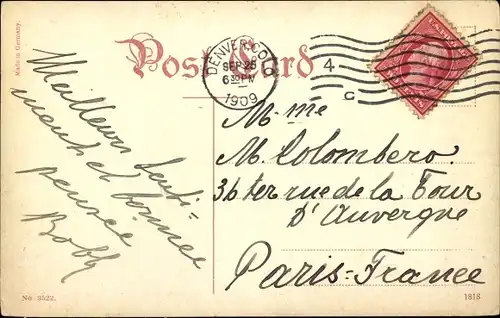 Made in Germany.
Post Card
DENVER, COLO.
SEP 25
630 PM
1909
4
C
Meilleurs senti-
ments et bonnee
pensee
Bobby
Mme
M. Colombero.
36 ter rue de la Tour
D'Auvergne
Paris-France
No 3522.
1818